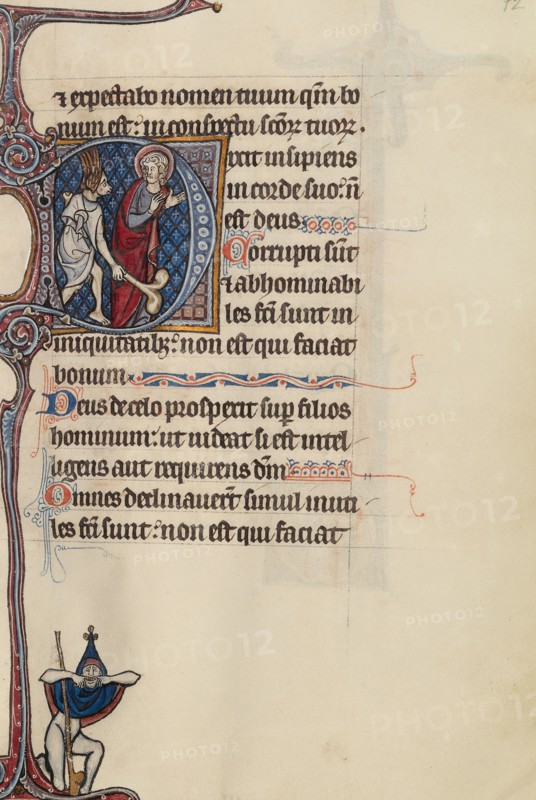 12
⁊ expectabo nomen tuum qm̄ bo
num est: in conspectu sc̄oꝝ tuoꝝ.
Dixit insipiens
in corde suo: n̄
est deus
Corrupti sūt
⁊ abhominabi
les fc̄i sunt in
iniquitatibꝫ: non est qui faciat
bonum
Deus de celo prospexit suꝑ filios
hominum: ut uideat si est intel
ligens aut requirens dm̄
Omnes declinauer̄t simul inuti
les fc̄i sunt: non est qui faciat
PHOTO12